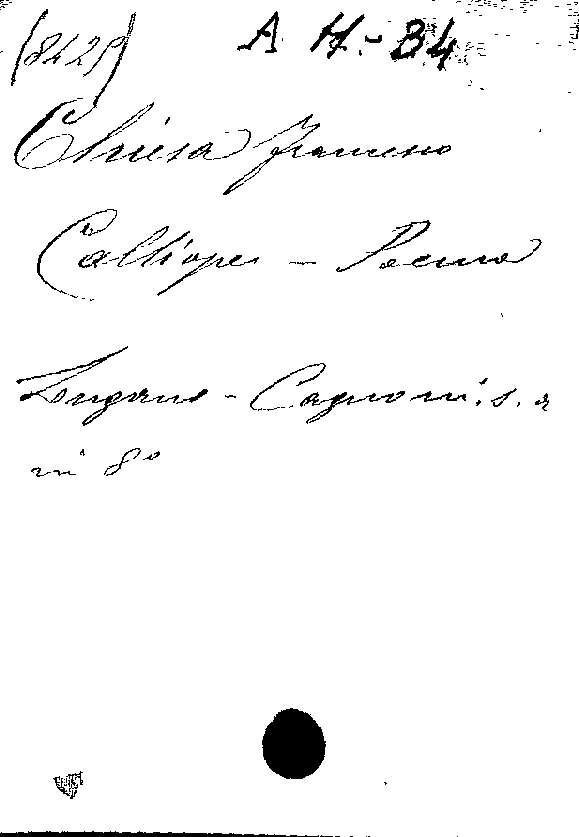 (8429) A H.-34
Chiesa Francesco
Calliope - Poema
Lugano - Cagnoni. s. a
in 8°